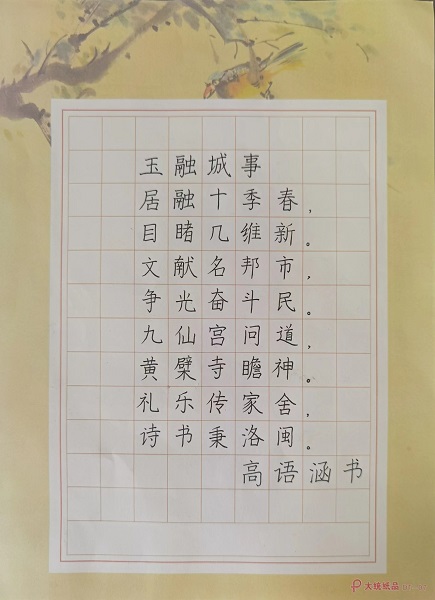 玉融城事
居融十季春，
目睹几维新。
文献名邦市，
争光奋斗民。
九仙宫问道，
黄檗寺瞻神。
礼乐传家舍，
诗书秉洛闽。
高语涵书
大统纸品